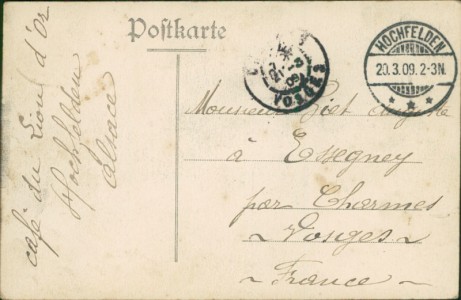 Postkarte
HOCHFELDEN
20.3.09.2-3N.
VOSGES
Monsieur Piet Auguste
à Essegney
par Charmes
~ Vosges ~
~ France ~
café du Lion d'Or
Hochfelden
Alsace